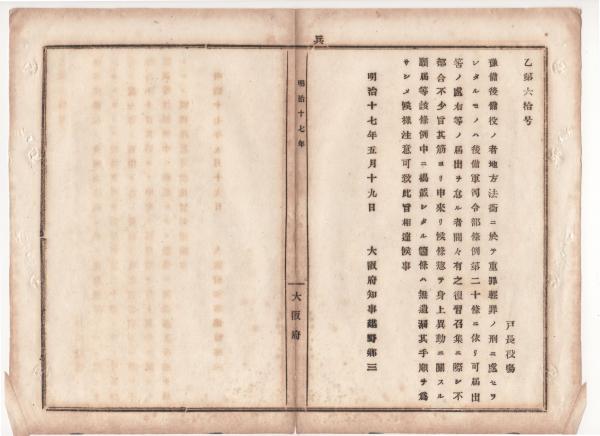 兵
乙第六拾号
戸長役場
豫備後備役ノ者地方法衙ニ於テ重罪輕罪ノ刑ニ處セラ
レタルモノハ後備軍司令部條例第二十條ニ依リ可届出
等ノ處右等ノ届出ヲ怠ル者間々有之復習召集ニ際シ不
都合不少旨其筋ヨリ申來リ候條總テ身上異動ニ關スル
願届等該條例中ニ掲載シタル箇條ハ無遺漏其手順ヲ為
サシメ候様注意可致此旨相達候事
明治十七年五月十九日
大阪府知事建野郷三
明治十七年
大阪府